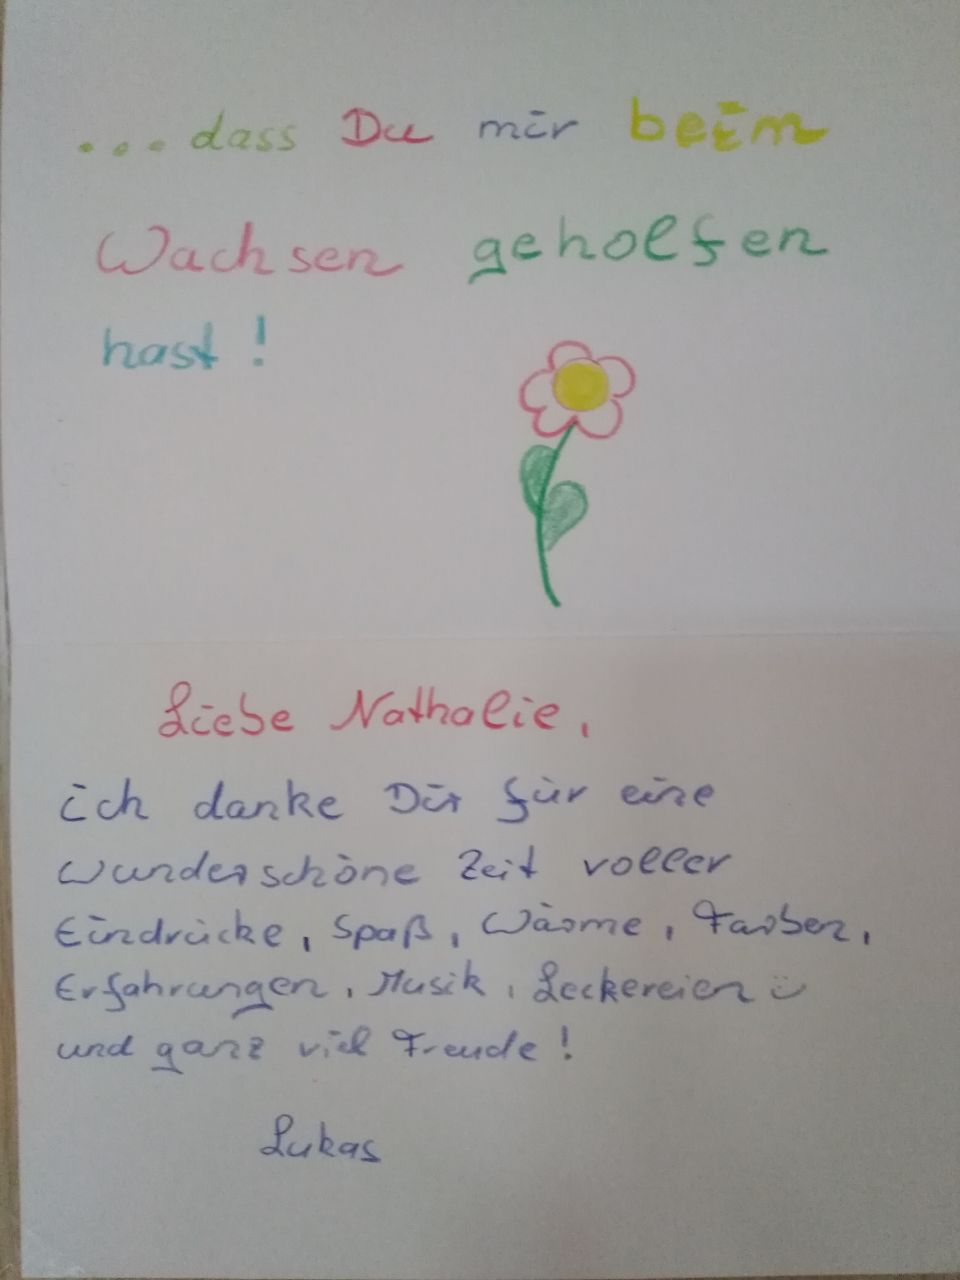 ...dass Du mir beim
Wachsen geholfen
hast!
Liebe Nathalie,
ich danke Dir für eine
wunderschöne Zeit voller
Eindrücke, Spaß, Wärme, Farben,
Erfahrungen, Musik, Leckereien ü
und ganz viel Freude!
Lukas